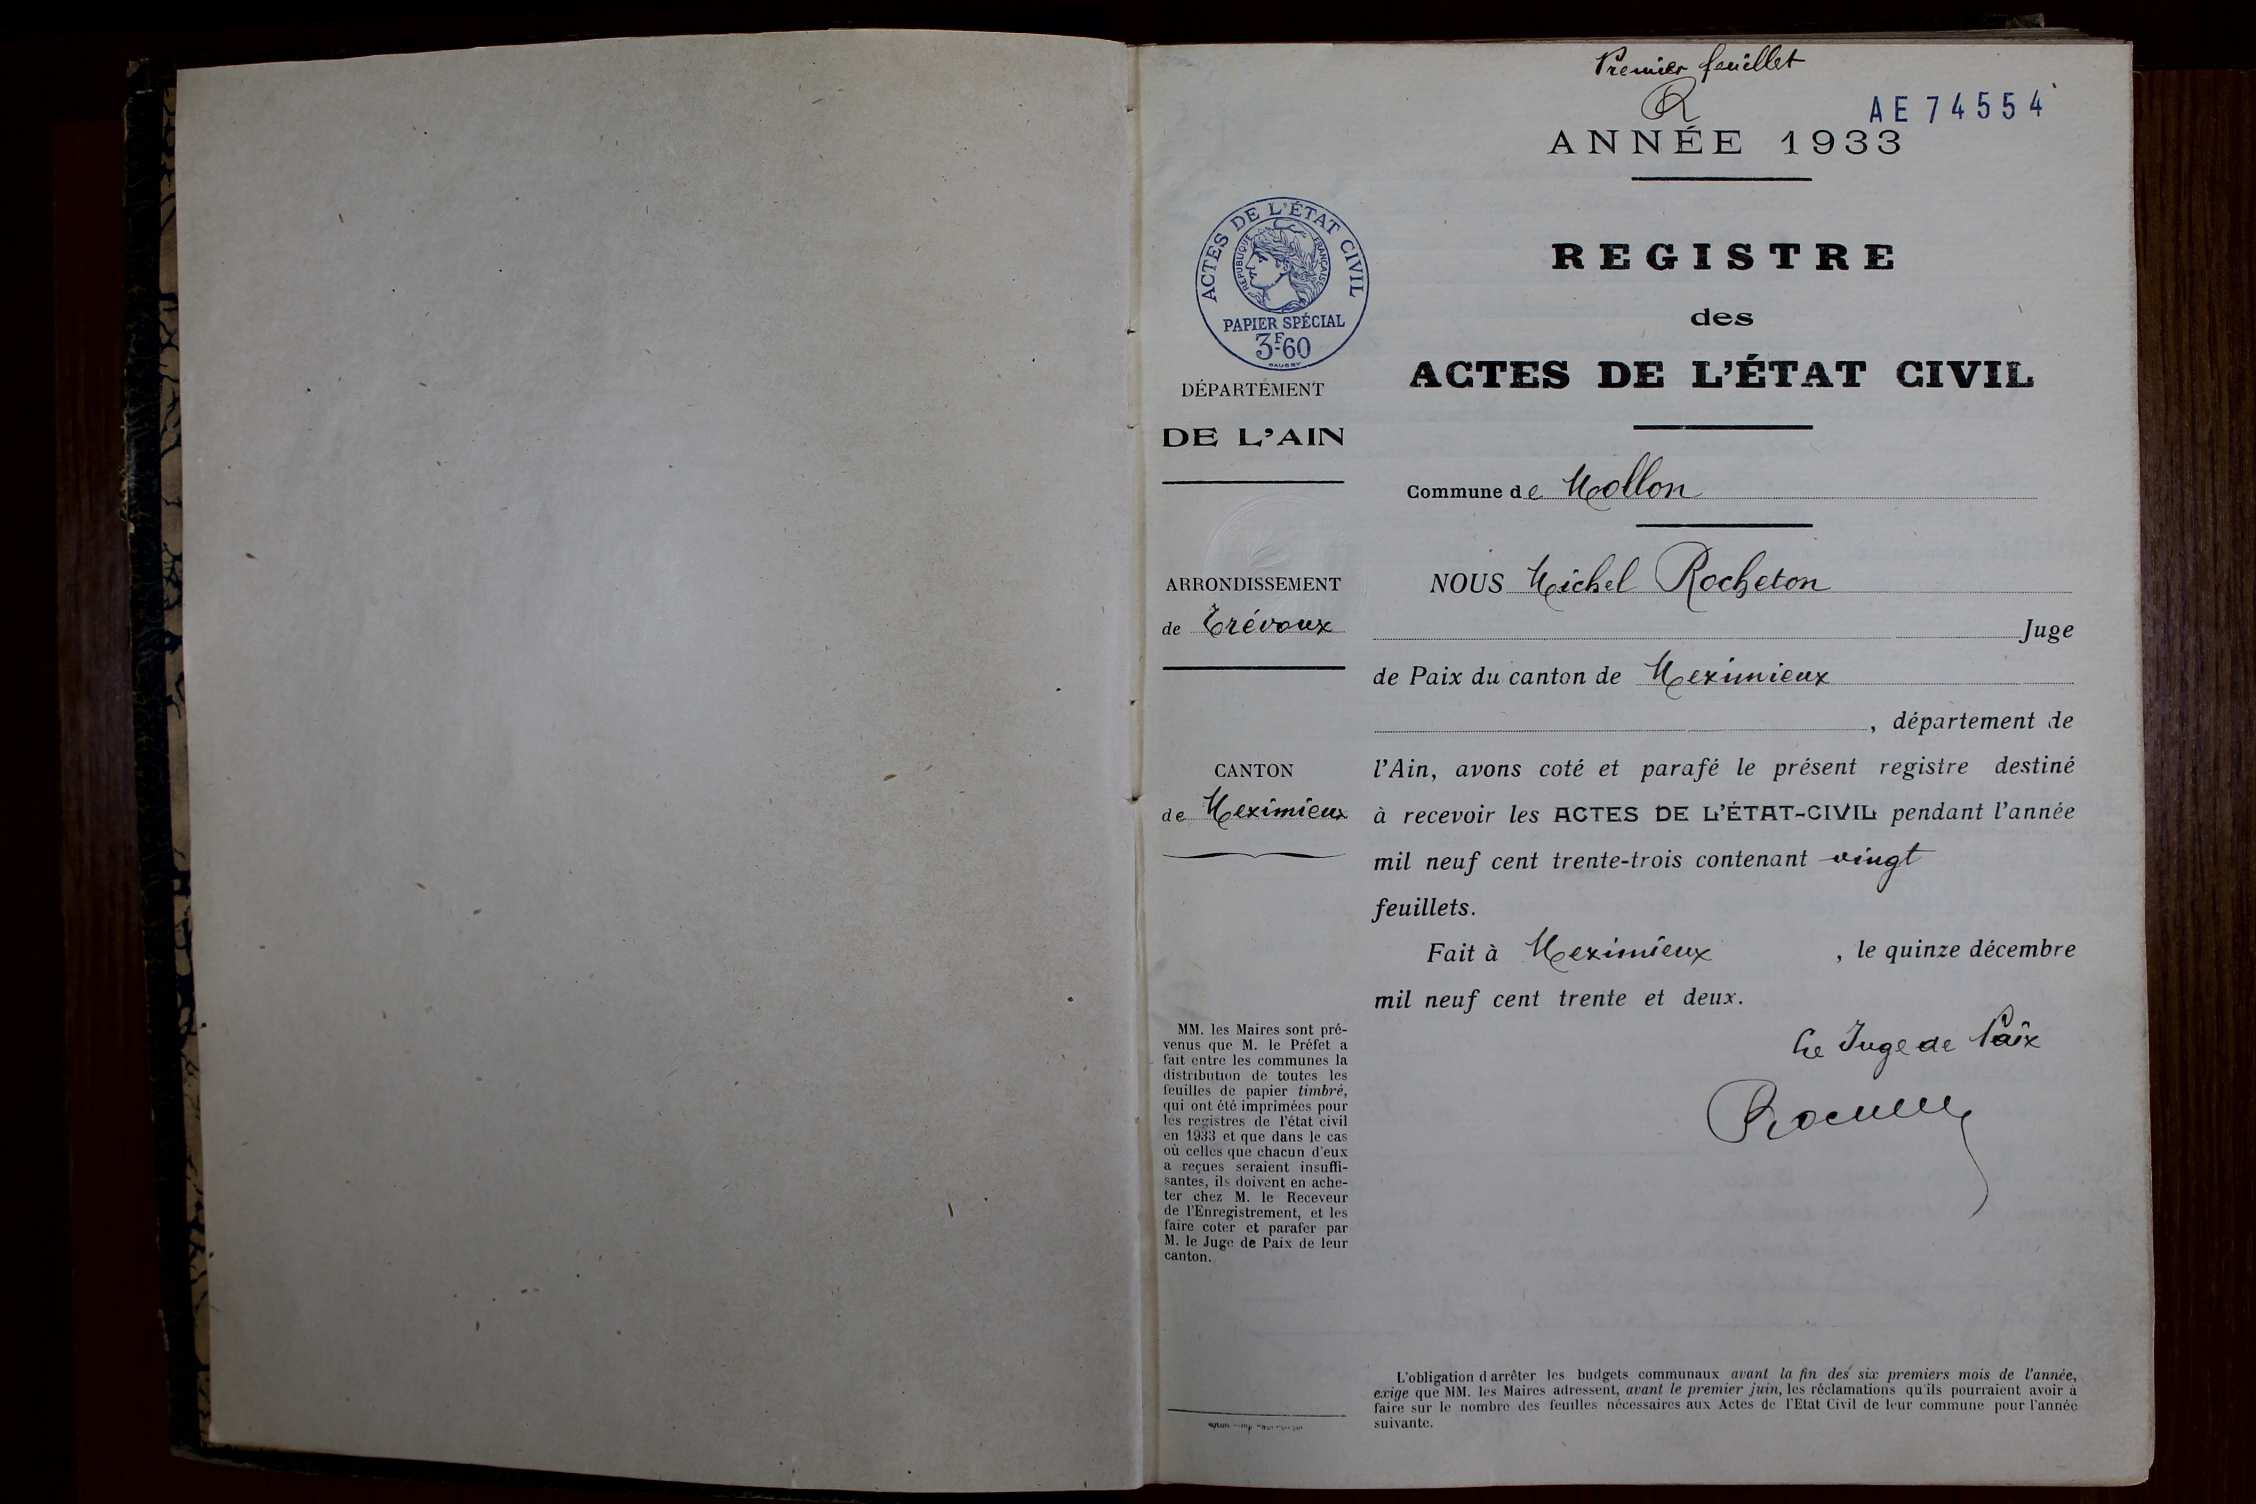 Premier feuillet
R
AE 74554
ANNÉE 1933
ACTES DE L'ÉTAT CIVIL
RÉPUBLIQUE FRANÇAISE
PAPIER SPÉCIAL
3F60
DÉPARTEMENT
DE L'AIN
ARRONDISSEMENT
de Trévoux
CANTON
de Meximieux
MM. les Maires sont pré-
venus que M. le Préfet a
fait entre les communes la
distribution de toutes les
feuilles de papier timbré,
qui ont été imprimées pour
les registres de l'état civil
en 1933 et que dans le cas
où celles que chacun d'eux
a reçues seraient insuffi-
santes, ils doivent en ache-
ter chez M. le Receveur
de l'Enregistrement, et les
faire coter et parafer par
M. le Juge de Paix de leur
canton.
REGISTRE
des
ACTES DE L'ÉTAT CIVIL
Commune de Mollon
NOUS Michel Rocheton
Juge
de Paix du canton de Meximieux
, département de
l'Ain, avons coté et parafé le présent registre destiné
à recevoir les ACTES DE L'ÉTAT-CIVIL pendant l'année
mil neuf cent trente-trois contenant vingt
feuillets.
Fait à Meximieux , le quinze décembre
mil neuf cent trente et deux.
Le Juge de Paix
L'obligation d'arrêter les budgets communaux avant la fin des six premiers mois de l'année,
exige que MM. les Maires adressent, avant le premier juin, les réclamations qu'ils pourraient avoir à
faire sur le nombre des feuilles nécessaires aux Actes de l'Etat Civil de leur commune pour l'année
suivante.